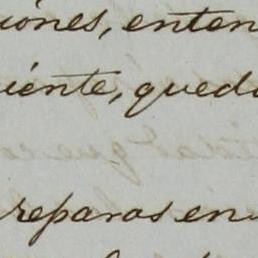 iones, enten
iente, queda
reparos en